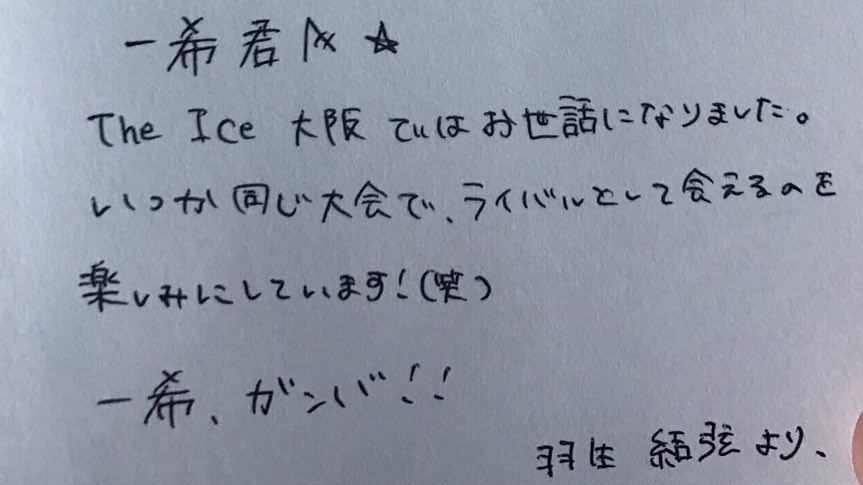 一希君へ☆
The Ice 大阪 ではお世話になりました。
いつか同じ大会で、ライバルとして会えるのを
楽しみにしています!(笑)
一希、ガンバ!!
羽生 結弦より、